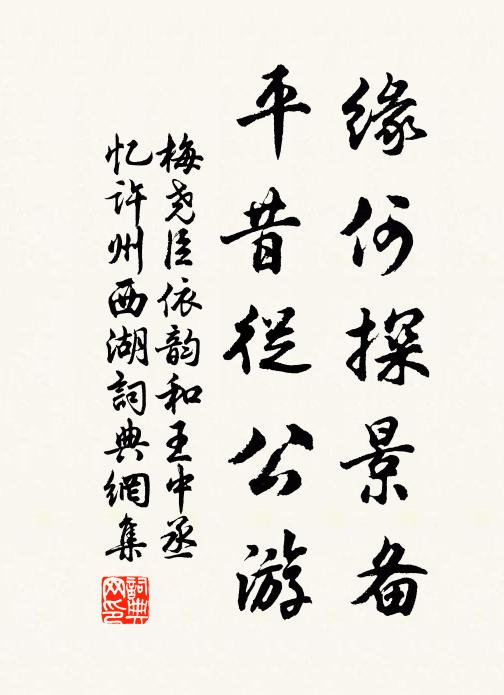 缘何探景备
平昔從公游
梅尧臣依韵和王中丞
忆许州西湖詞典網集
詞典網印